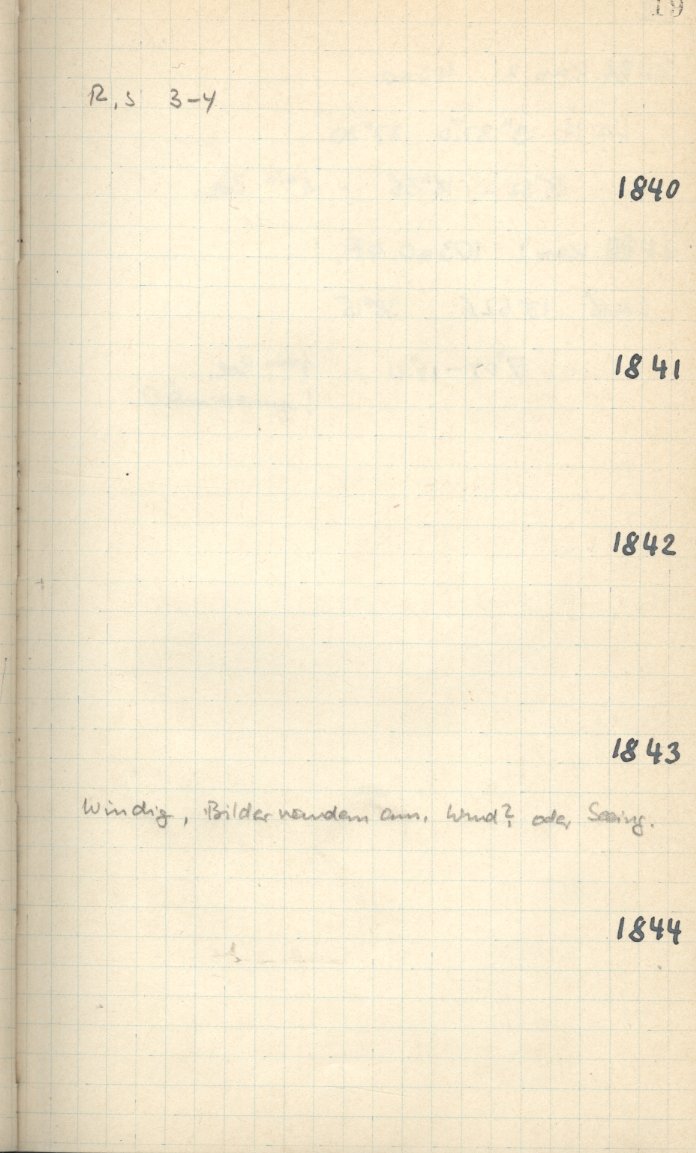 19
R, S 3-4
1840
1841
1842
1843
Windig, Bilder wandern Wind? oder Seeing.
1844